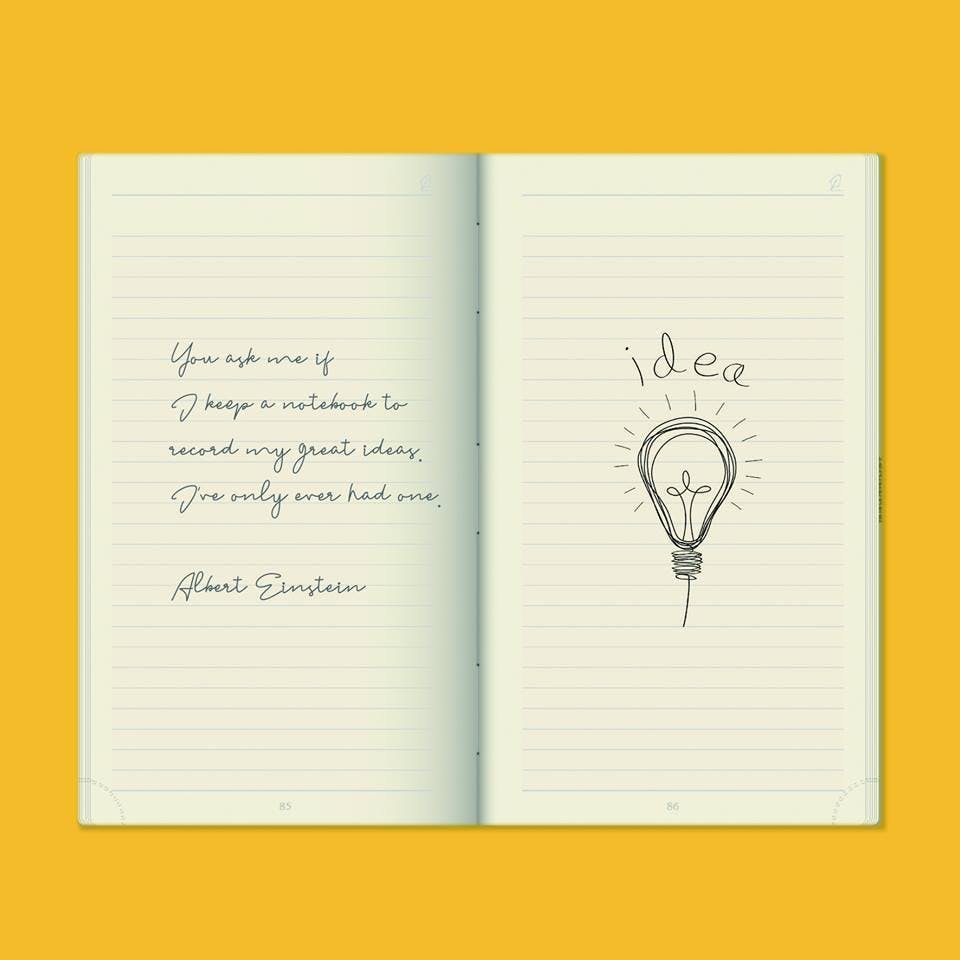 You ask me if
I keep a notebook to
record my great ideas.
I've only ever had one.
Albert Einstein
85
idea
86